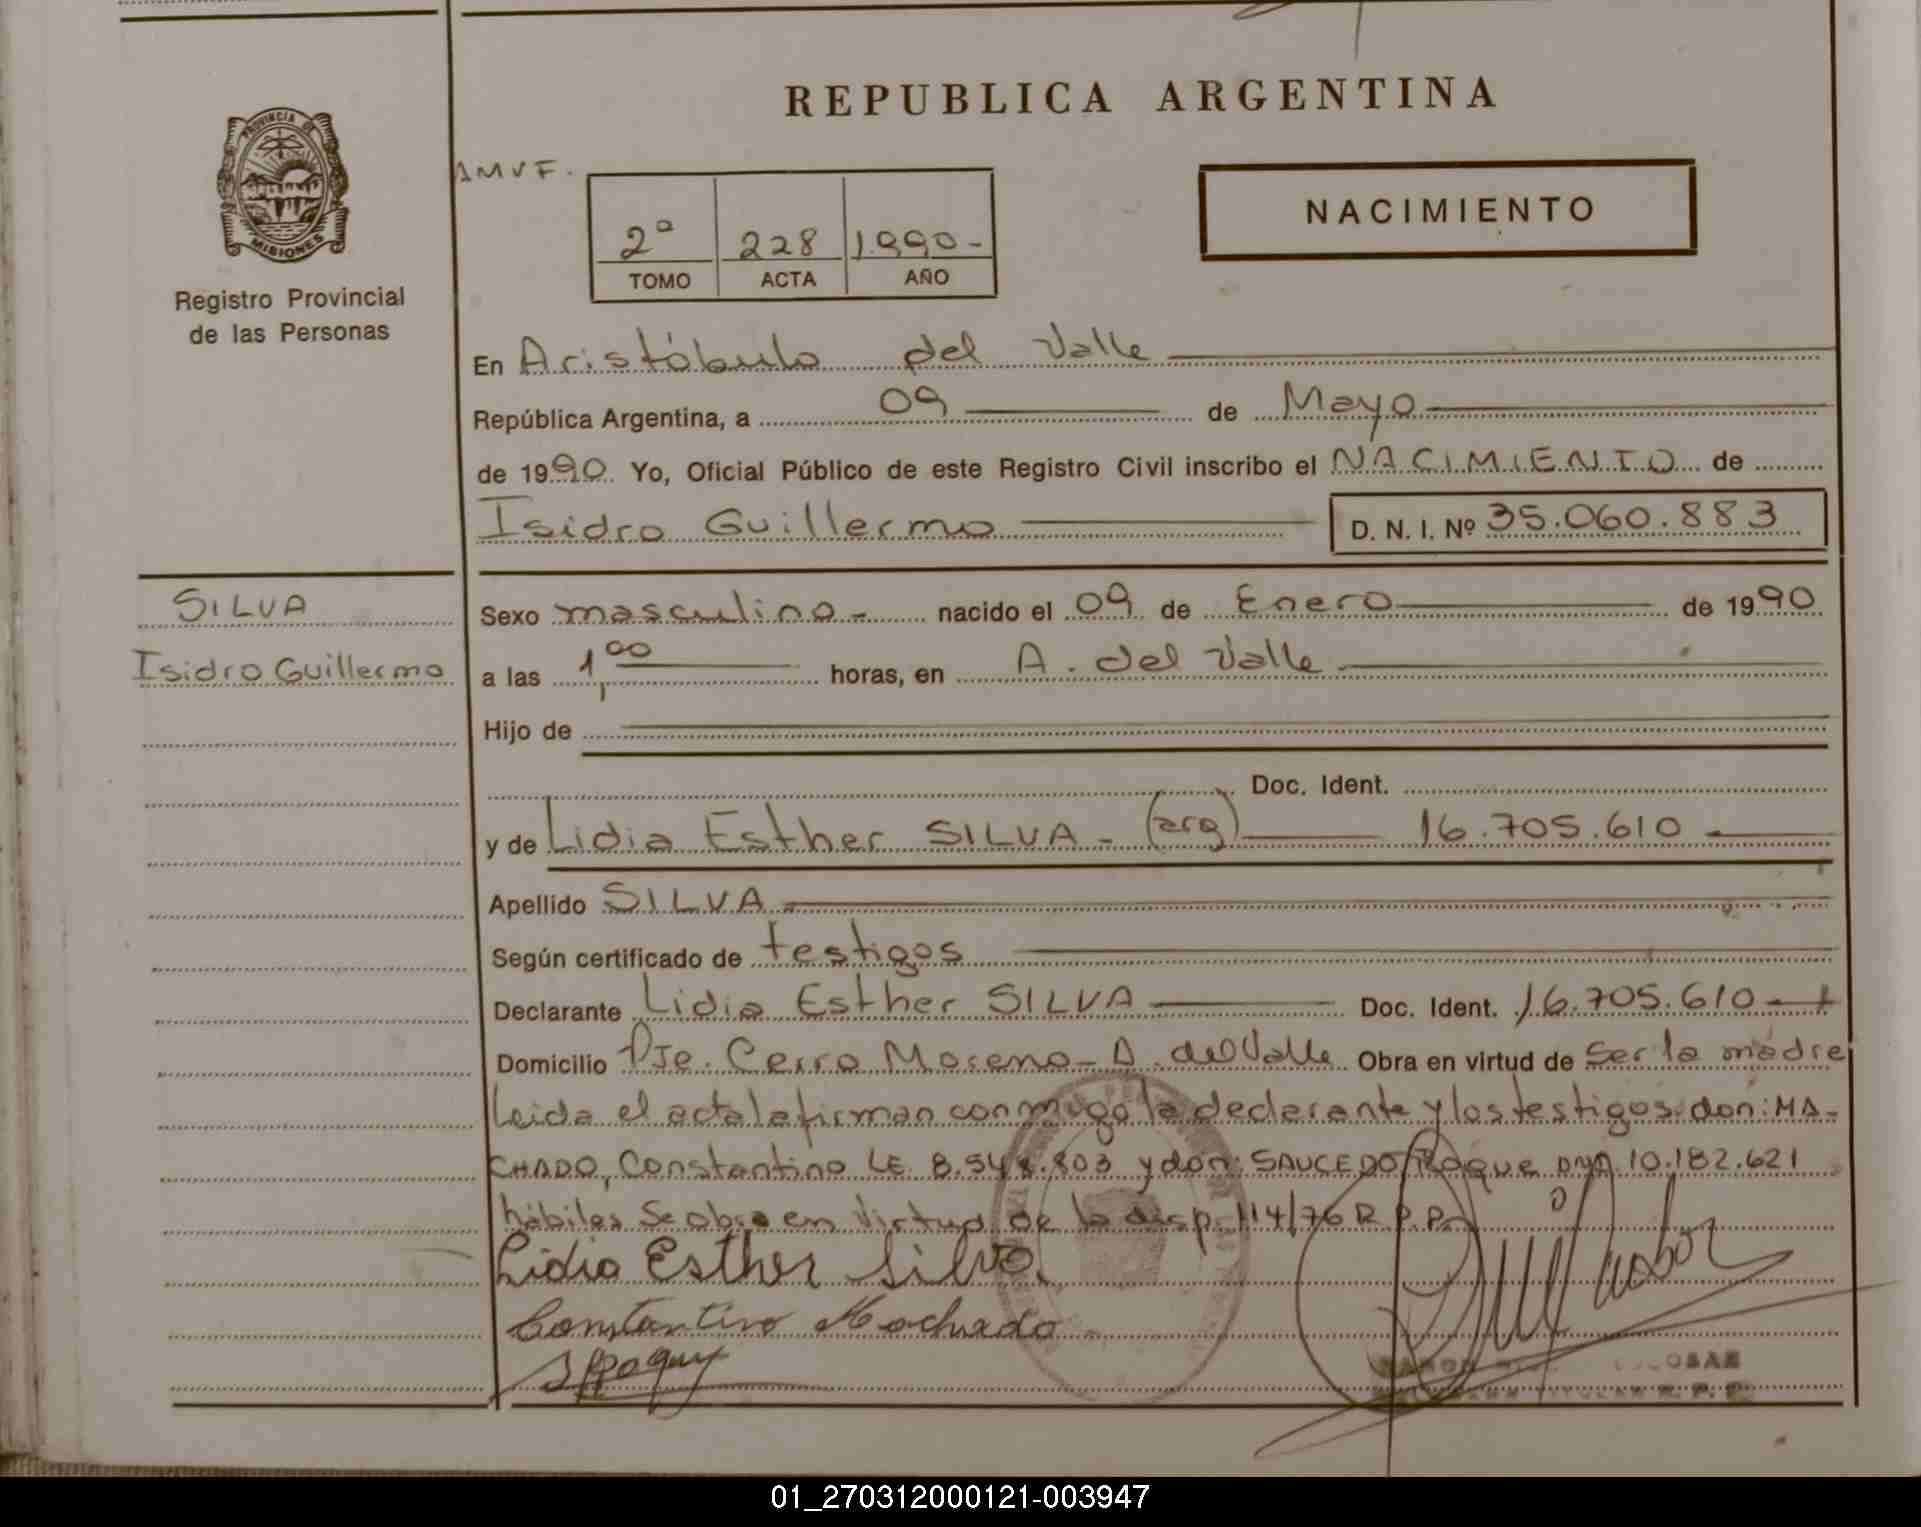 REPUBLICA ARGENTINA
PROVINCIA DE
MISIONES
Registro Provincial
de las Personas
AMVF.
2º 228 1.990-
TOMO ACTA AÑO
NACIMIENTO
En Aristóbulo del Valle
República Argentina, a 09 de Mayo
de 1990. Yo, Oficial Público de este Registro Civil inscribo el NACIMIENTO de
Isidro Guillermo D. N. I. Nº 35.060.883
SILVA
Isidro Guillermo
Sexo masculino.- nacido el 09 de Enero de 1990
a las 1,00 horas, en A. del Valle
Hijo de
Doc. Ident.
y de Lidia Esther SILVA - (arg) 16.705.610
Apellido SILVA
Según certificado de testigos
Declarante Lidia Esther SILVA Doc. Ident. 16.705.610
Domicilio Pje. Cerro Moreno - A. del Valle Obra en virtud de ser la madre
Leida el acta la firman conmigo la declarante y los testigos don: MA-
CHADO, Constantino LE. 8.548.803 y don: SAUCEDO, Roque DNI 10.182.621
hábiles se obra en virtud de la disp. 114/76 R.P.P.
Lidia Esther Silva
Constantino Machado
01_270312000121-003947